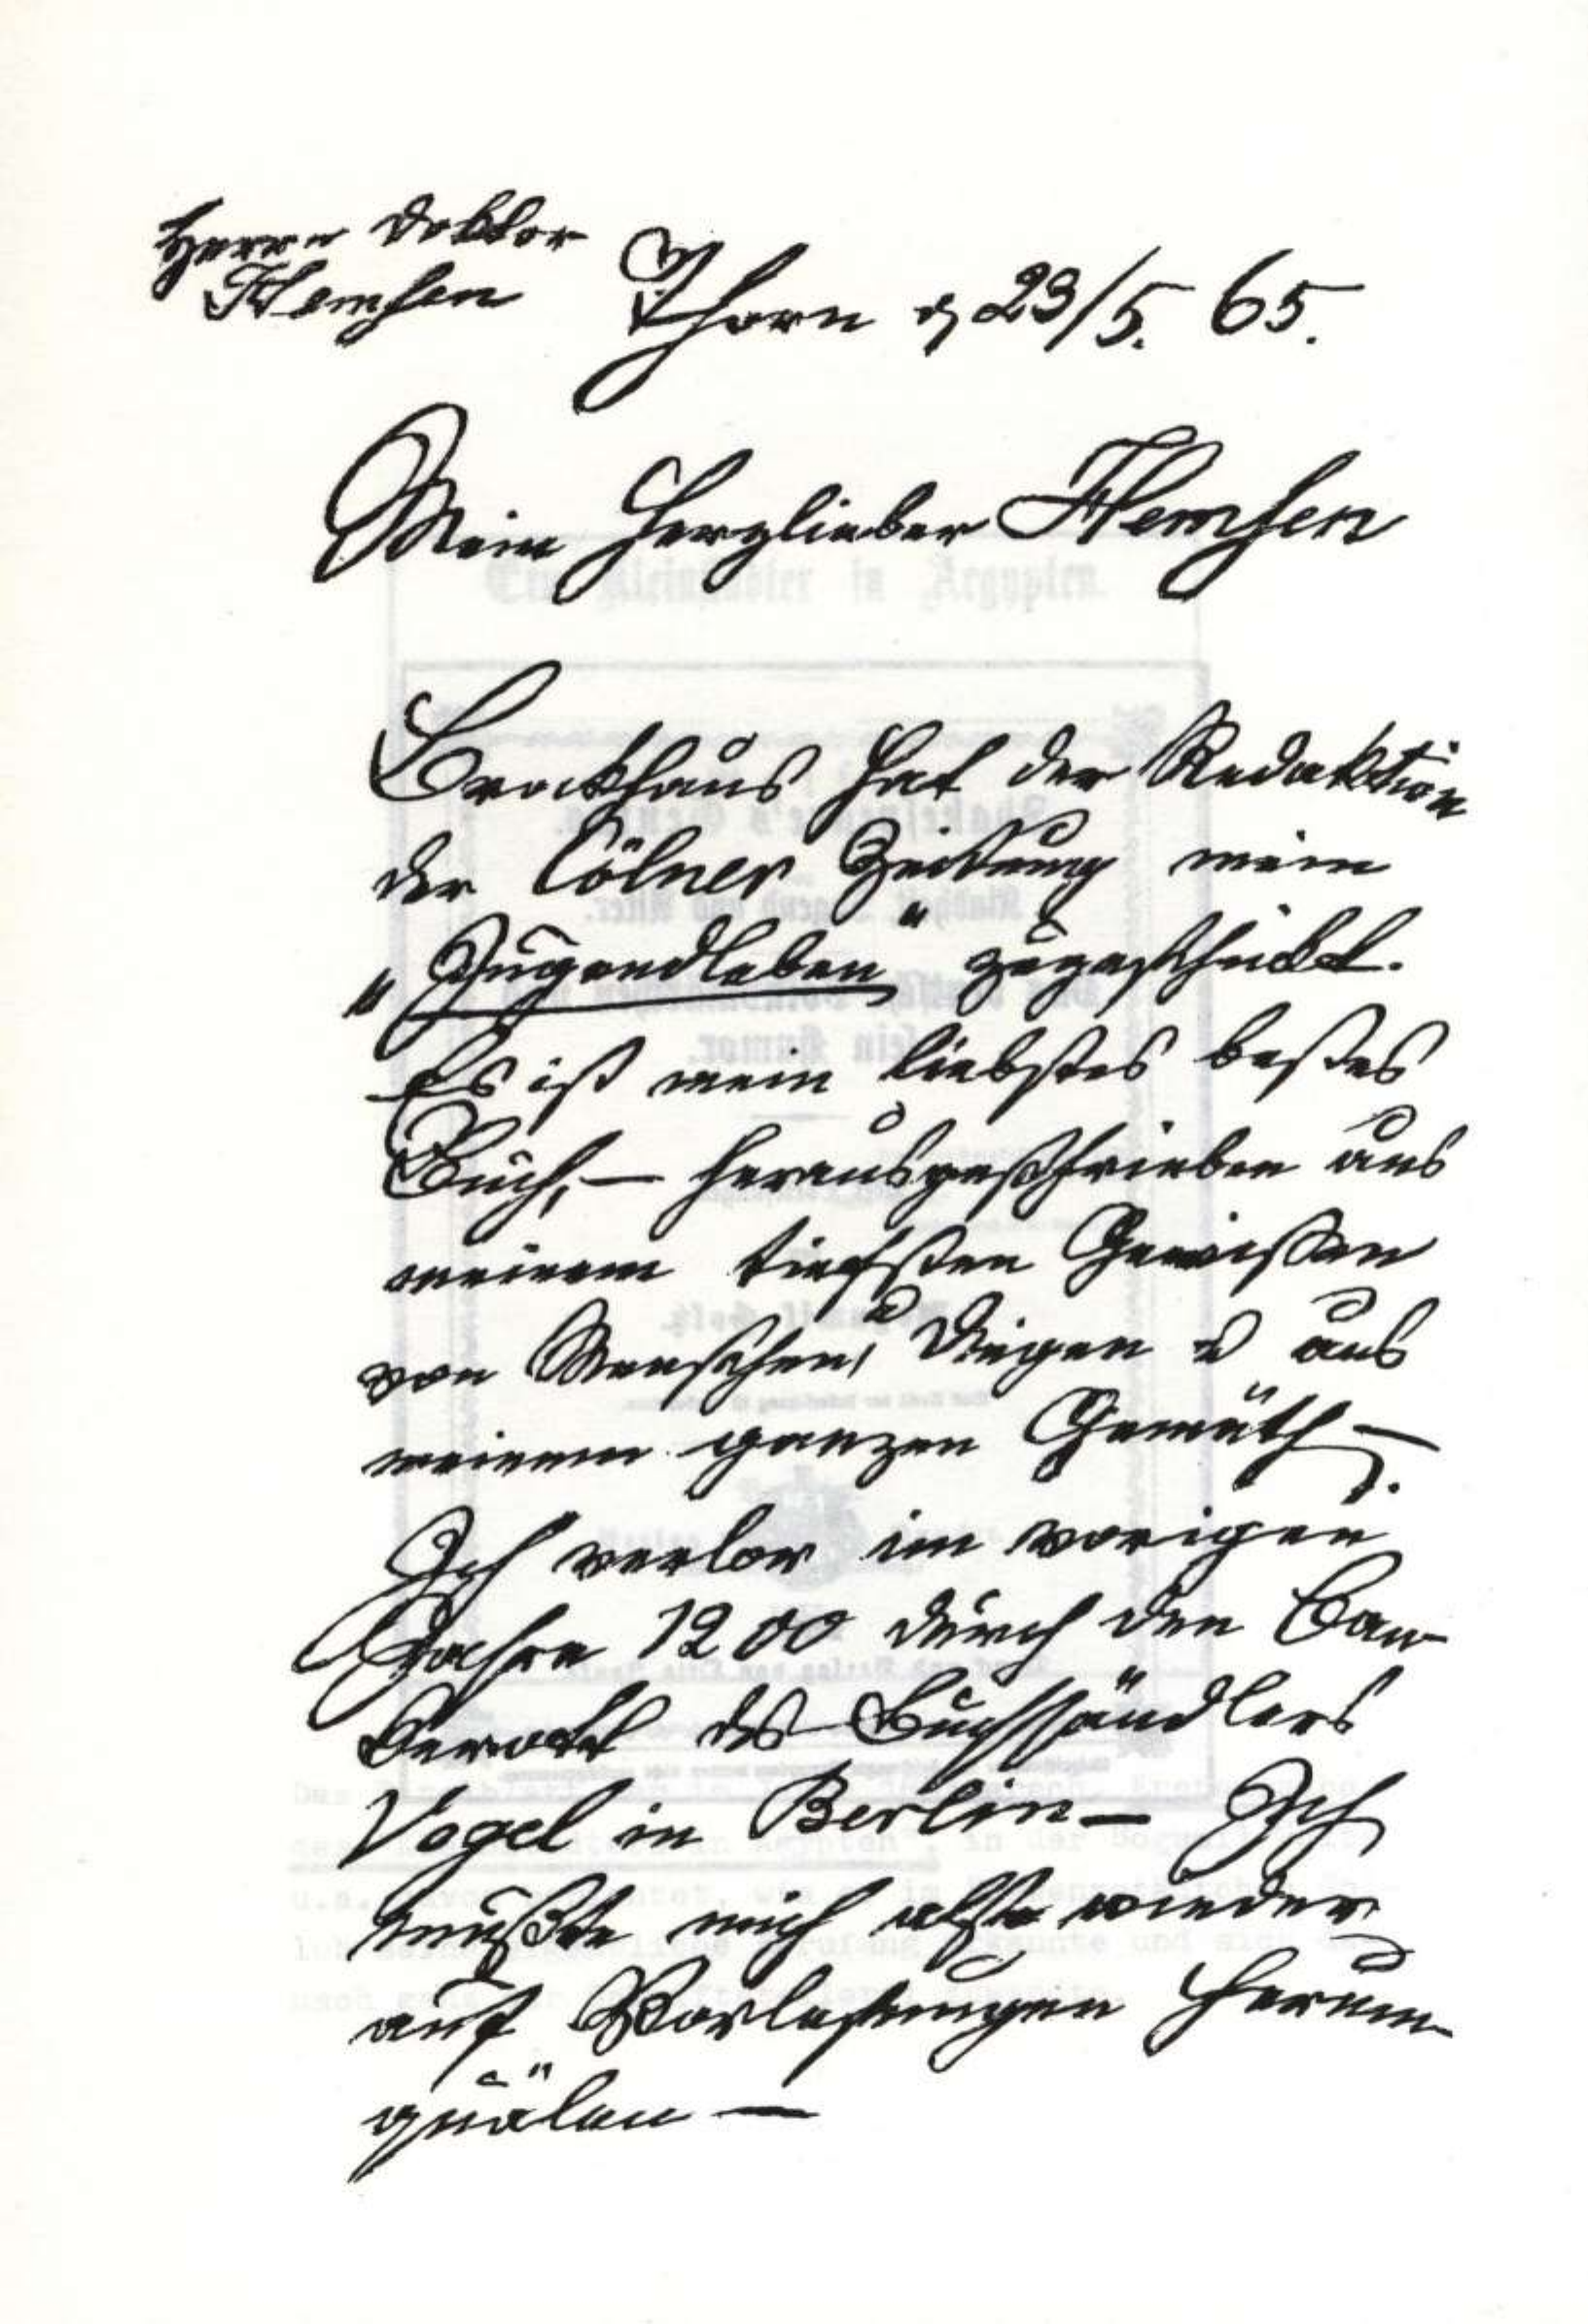 Herrn Doktor
Hemsen
Thorn d 23/5. 65.
Mein herzlieber Hemsen
Brockhaus hat der Redaktion
der Cölner Zeitung mein
„Jugendleben" zugeschickt.
Es ist mein liebstes bestes
Buch, — herausgeschrieben aus
meinem tiefsten Gewissen
von Menschen, Dingen u aus
meinem ganzen Gemüth —.
Ich verlor im vorigen
Jahre 1200 durch den Ban-
kerott des Buchhändlers
Vogel in Berlin — Ich
mußte mich also wieder
auf Vorlesungen herum-
quälen —